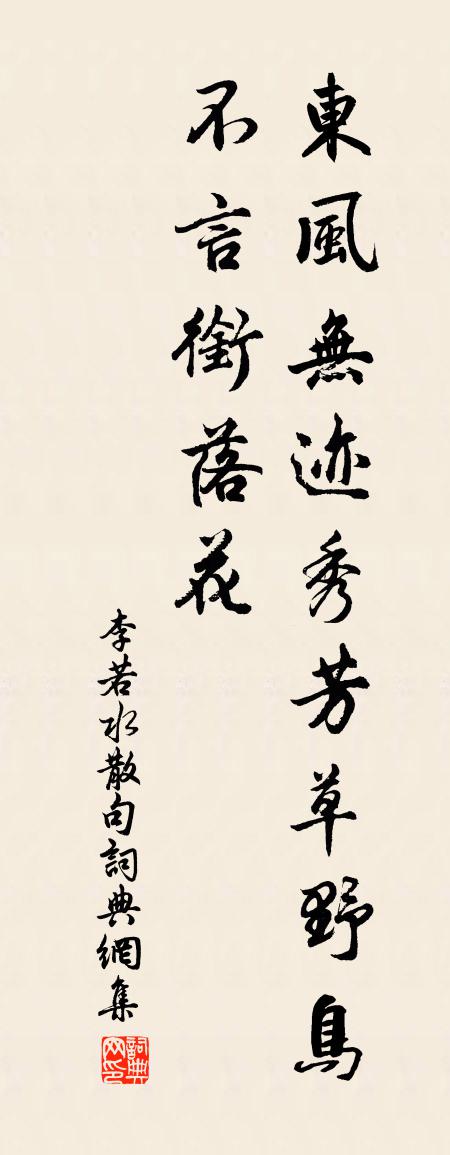 東風無迹秀芳草野鳥
不言銜落花
李若水散句詞典網集
詞典网印